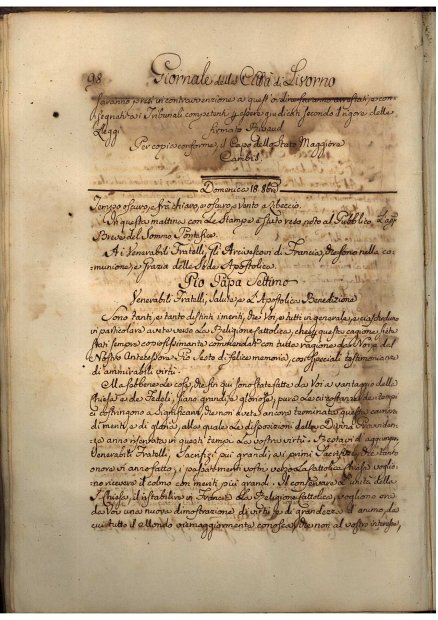 98 Giornale della Città di Livorno
saranno presi in contravvenzione a quest'ordine saranno arrestati, e con
segnati ai Tribunali competenti p essere giudicati secondo il rigore delle
Leggi firmato
Per copia conforme, il Capo dello Stato Maggiore
Cambis
Domenica 18. 8bre
Tempo oscuro, e fra chiaro, e oscuro, e vento a Libeccio.
In questa mattina con Le Stampe è stato reso noto al Pubblico
Breve del Sommo Pontefice
Ai Venerabili Fratelli, gli Arcivescovi di Francia, che sono nella co-
munione, e Grazia della Sede Apostolica.
Pio Papa Settimo
Venerabili Fratelli, Salute, e L'Apostolica Benedizione
Sono tanti, e tanto distinti i meriti, che Voi, e tutti in generale, e ciascheduno
in particolare avete verso La Religione Cattolica, che per questa cagione siete
stati sempre con commendati con tutta ragione da Noi, e dal
Nostro Antecessore Pio Sesto di felice memoria, con speciali testimonianze
di ammirabili virtù.
Ma sebbene Le cose, che fin qui sono state fatte da Voi a vantaggio della
Chiesa, e de Fedeli, siano grandi, e gloriose, pure Le circostanze de tempi
ci costringono a significarvi, che non avete ancora terminata questa carriera
di meriti, e di gloria, alla quale Le disposizioni della Divina Provviden-
za anno riserbata in questi tempi La vostra virtù. Bisogna aggiungere,
Venerabili Fratelli, Sacrifizi più grandi, ai primi Sacrifizi, che tanto
onore vi anno fatto, i passati meriti vostri verso La Cattolica Chiesa voglio-
no ricevere il colmo con meriti, più grandi. Il conservare L'unità della
Chiesa, il ristabilire in Francia La Religione Cattolica, vogliono ora
da Voi una nuova dimostrazione di virtù, e di grandezza d'animo, da
cui tutto il Mondo viemaggiormente conosca, che non al vostro interesse,